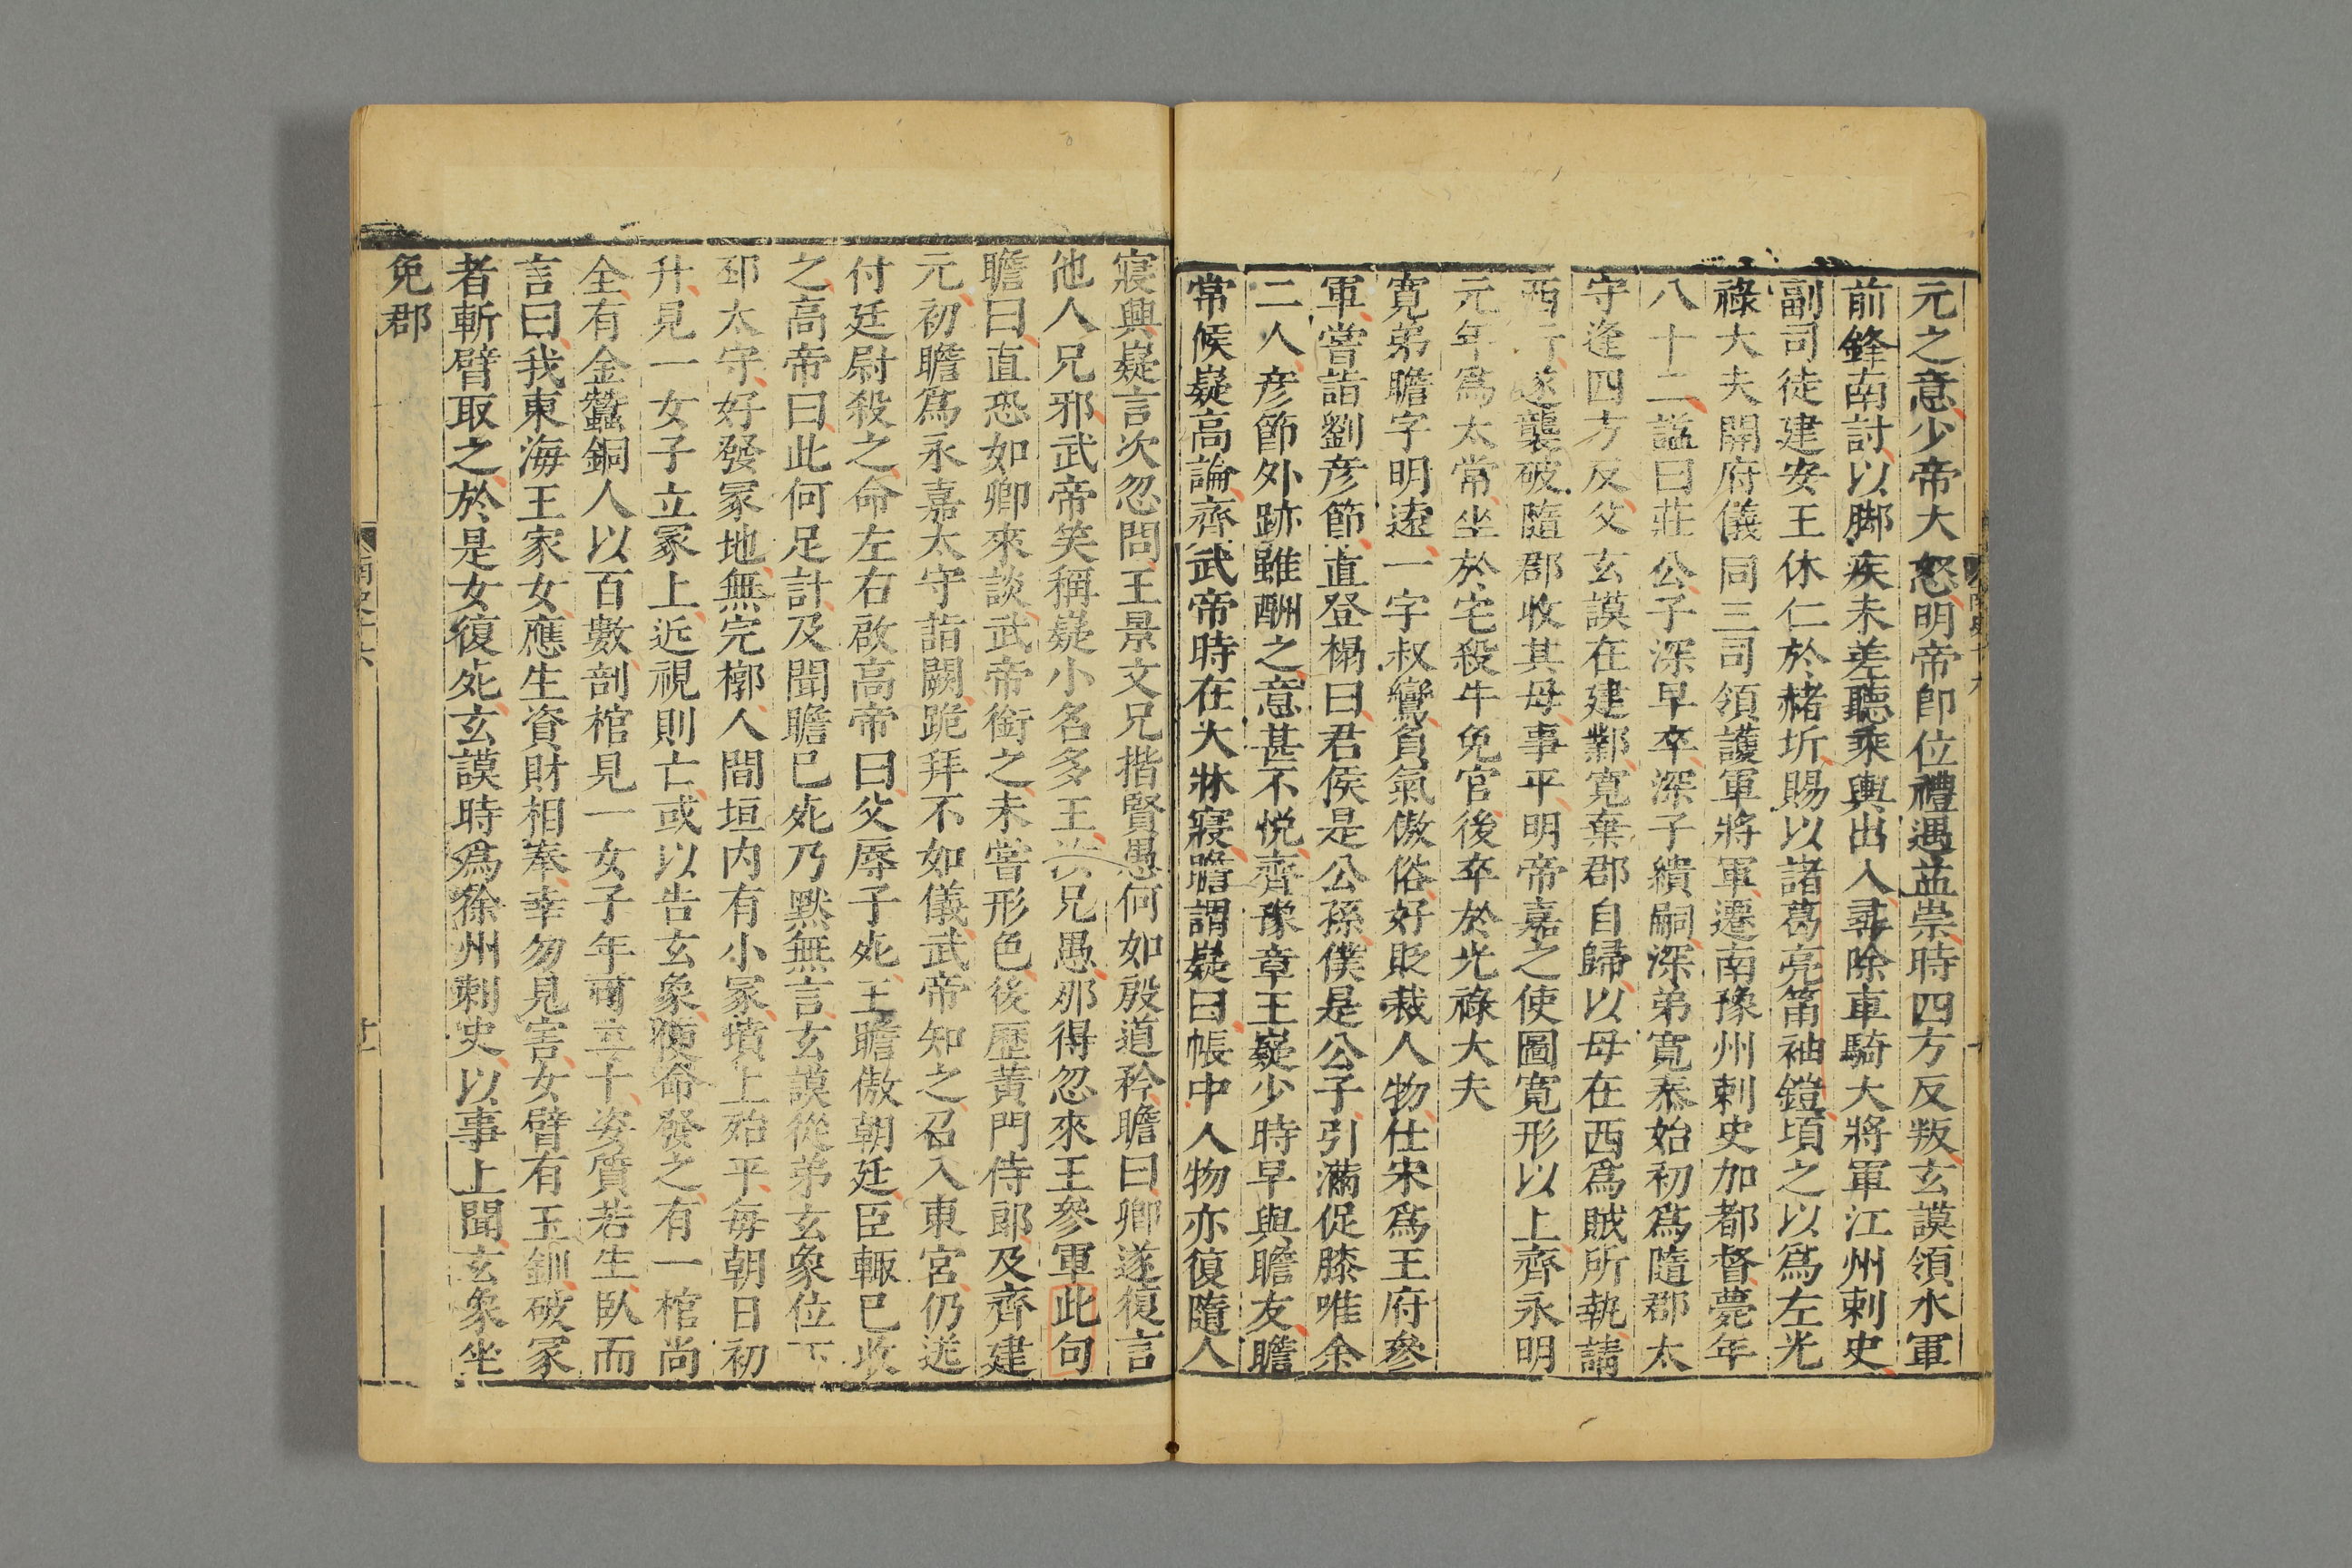 元之意少帝大怒明帝即位禮遇益崇時四方反叛玄謨領水軍
前鋒南討以脚疾未差聽乘輿出入尋除車騎大將軍江州刺史
副司徒建安王休仁於赭圻賜以諸葛亮筩袖鎧頃之以為左光
祿大夫開府儀同三司領護軍將軍遷南豫州刺史加都督薨年
八十二諡曰莊公子深早卒深子繢嗣深弟寬泰始初爲隨郡太
守逢四方反父玄謨在建鄴寬棄郡自歸以母在西爲賊所執請
西行遂襲破隨郡收其母事平明帝嘉之使圖寬形以上齊永明
元年爲太常坐於宅殺牛免官後卒於光祿大夫
寬弟瞻字明遠一字叔鸞負氣傲俗好貶裁人物仕宋爲王府參
軍嘗詣劉彥節直登榻曰君侯是公孫僕是公子引滿促膝唯余
二人彥節外跡雖酬之意甚不悅齊豫章王嶷少時早與瞻友瞻
常候嶷高論齊武帝時在大牀寢瞻謂嶷曰帳中人物亦復隨人
寢興嶷言次忽問王景文兄揩賢愚何如殷道矜瞻曰卿遂復言
他人兄邪武帝笑稱嶷小名多王汝兄愚那得忽來王參軍此句
瞻曰直恐如卿來談武帝銜之未嘗形色後歷黃門侍郎及齊建
元初瞻爲永嘉太守詣闕跪拜不如儀武帝知之召入東宮仍送
付廷尉殺之命左右啟高帝曰父辱子死王瞻傲朝廷臣輒已收
之高帝曰此何足計及聞瞻已死乃默無言玄謨從弟玄象位下
邳太守好發冢地無完槨人間垣内有小冢墳上殆平每朝日初
升見一女子立冢上近視則亡或以告玄象便命發之有一棺尚
全有金蠶銅人以百數剖棺見一女子年可二十姿質若生臥而
言曰我東海王家女應生資財相奉幸勿見害女臂有玉釧破冢
者斬臂取之於是女復死玄謨時爲徐州刺史以事上聞玄象坐
免郡